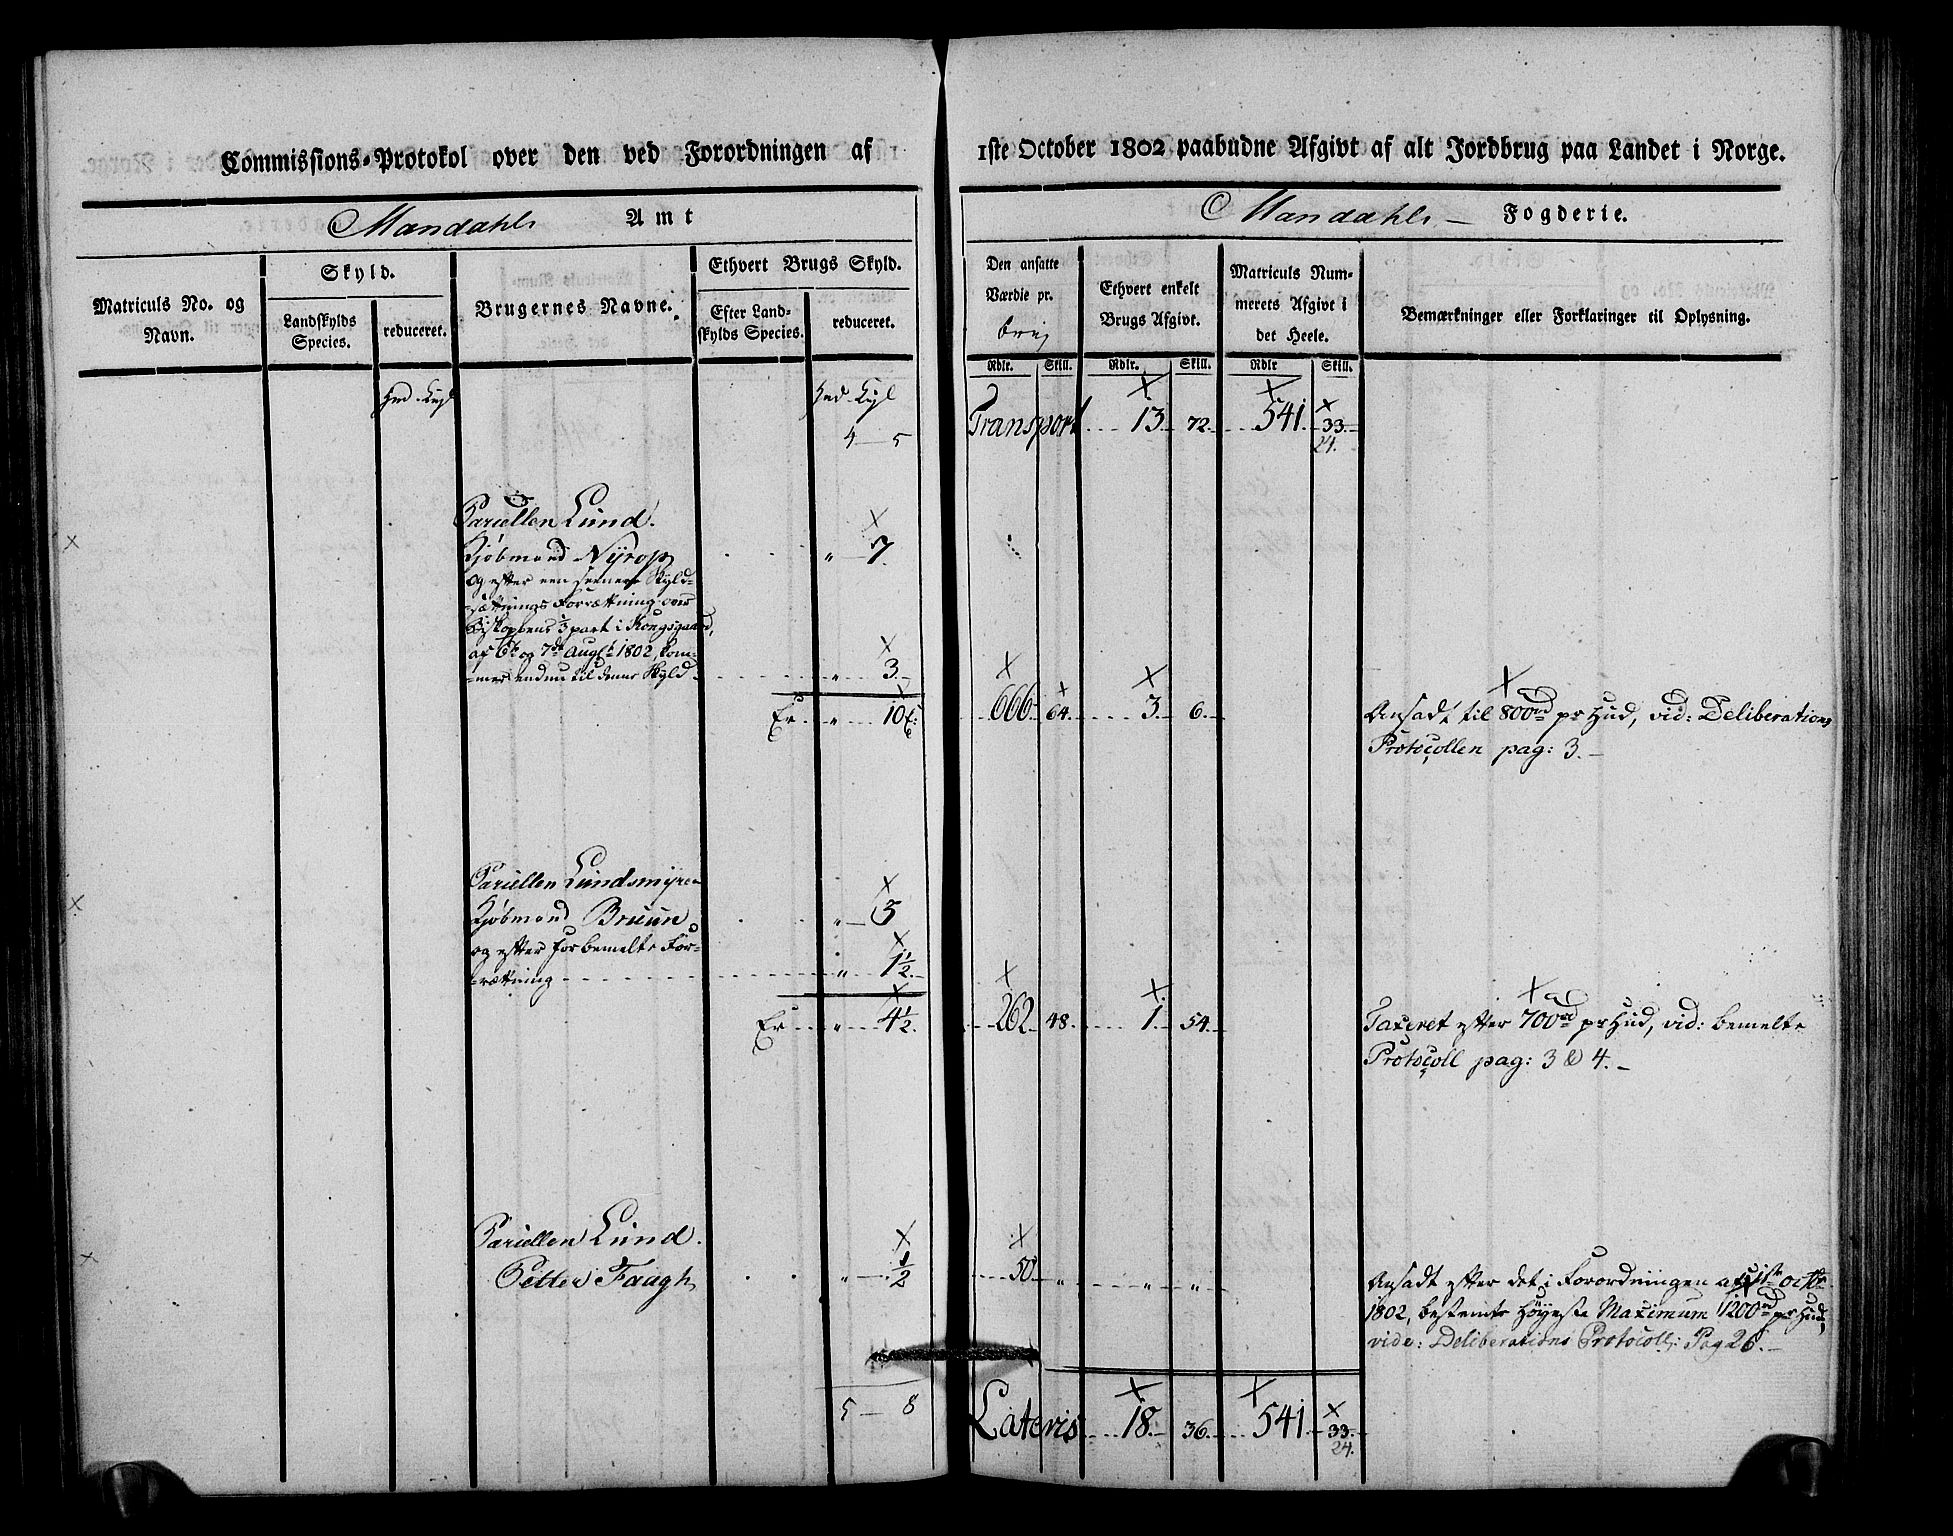 Commissions-Protokol over den ved Forordningen af 1ste October 1802 paabudne Afgivt af alt Jordbrug paa Landet i Norge.
Mandahls Amt
Mandahls Fogderie.
Matriculs No. og Navn.
Skyld.
Landskylds Species.
reduceret.
Brugernes Navne.
Ethvert Brugs Skyld.
Efter Landskylds Species.
reduceret.
Den ansatte Værdie pr.
brug
Ethvert enkelt Brugs Afgivt.
Matriculs Nummerets Afgivt i det Heele.
Bemærkninger eller Forklaringer til Oplysning.
Rdlr. Skill. Rdlr. Skill. Rdlr Skill.
4 — 5 Transport 13. 72. 541. 33. 24.
Parcellen Lund.
Kjøbmand Nÿrop " 7.
og efter een seenere Skyld-
sættnings Forrættning over
Biskoppens 1/3 part i Kongsgaard,
af 6te og 7de Augst 1802, kom-
mer endnu til denne Skyld " 3.
Er " 10 666. 64. 3. 6. Ansadt til 800rd pr Hud, vid: Deliberations
Protocollen pag: 3.
Parcellen Lundsmyren
Kjøbmand Bruun " 3
og efter forbemelte For-
rættning " 1 1/2.
Er " 4 1/2. 262. 48. 1. 54. Taxeret efter 700rd pr Hud, vid: bemelte
Protocoll pag: 3 & 4.
Parcellen Lund.
Petter Faugh " 1/2 50 " " " Ansadt efter det i Forordningen af 1ste Octbr
1802, bestemte høyeste Maximum 1200rd pr Hud,
vide: Deliberations Protocoll: Pag 26.
5 — 8 Lateris 18. 36. 541. 33. 24.